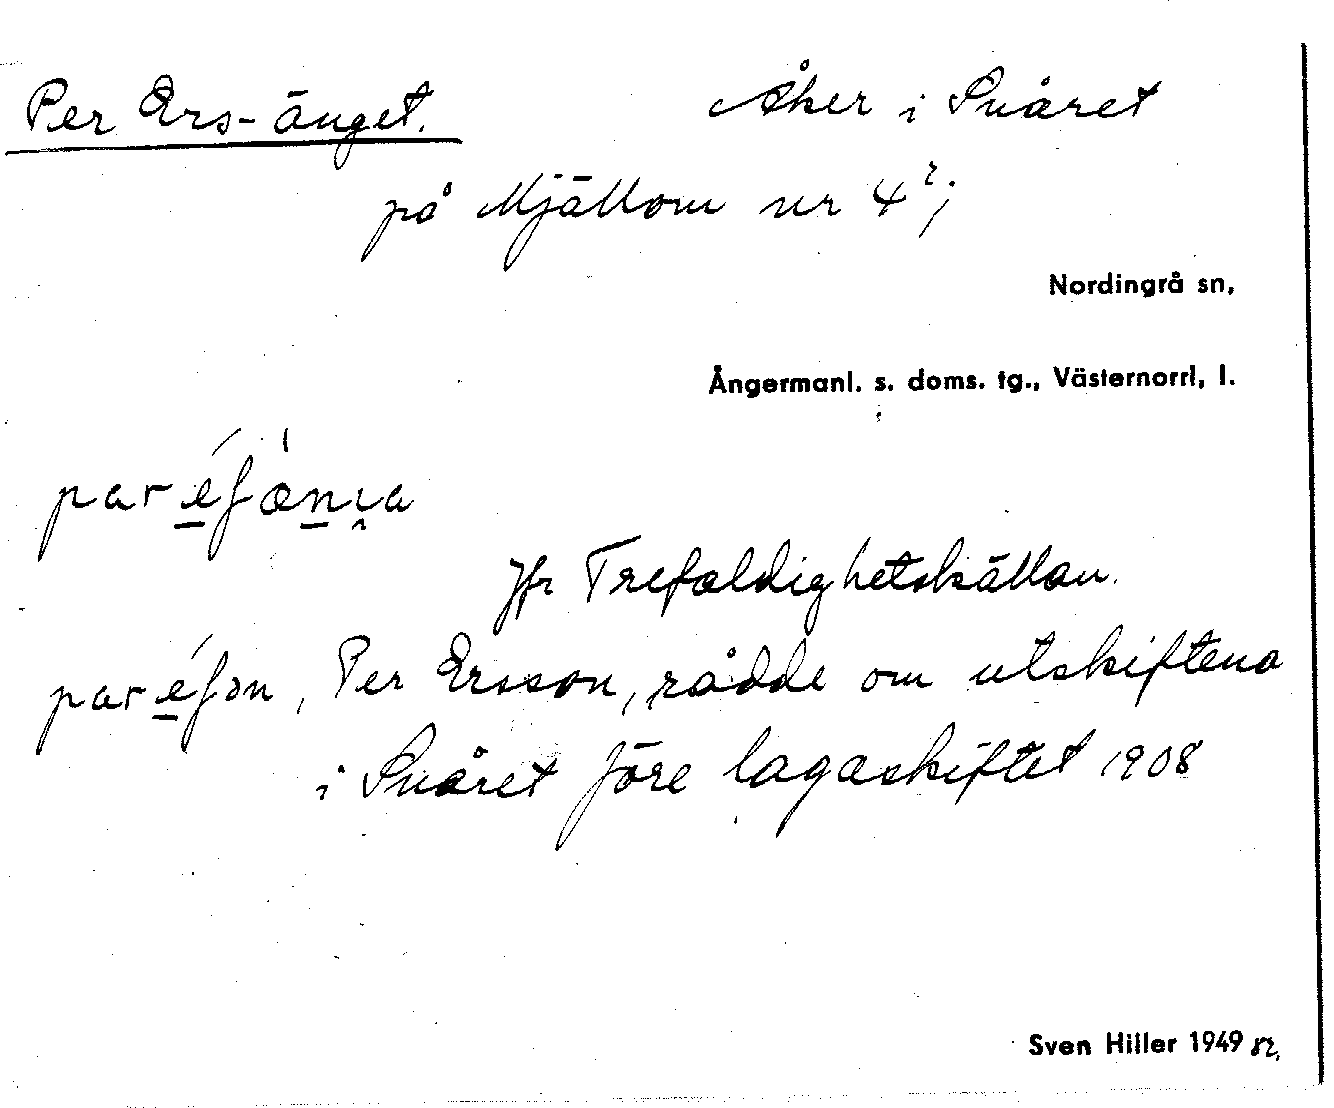 Per Ers-änget. Åker i Snåret
på Mjällom nr 4²;
Nordingrå sn,
Ångermanl. s. doms. tg., Västernorrl, l.
Jfr Trefaldighetskällan.
Per Ersson, rådde om utskiftena
i Snåret före lagaskiftet 1908
Sven Hiller 1949